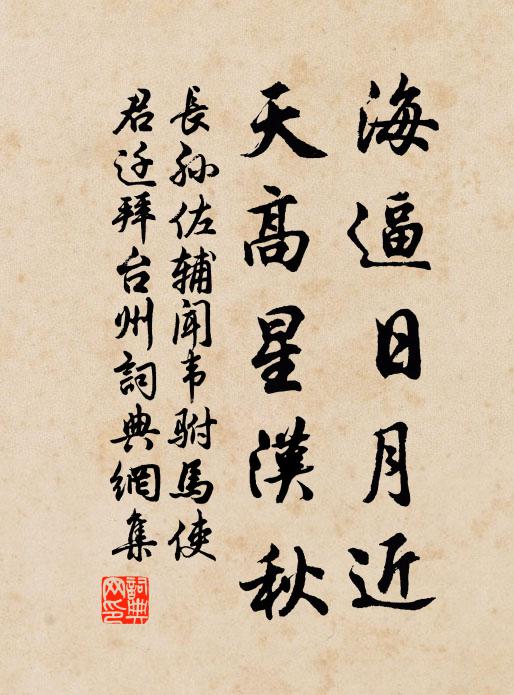 海逼日月近
天高星漢秋
長孙佐輔闻韦駙馬使
君迁拜台州詞典網集
詞典
网印